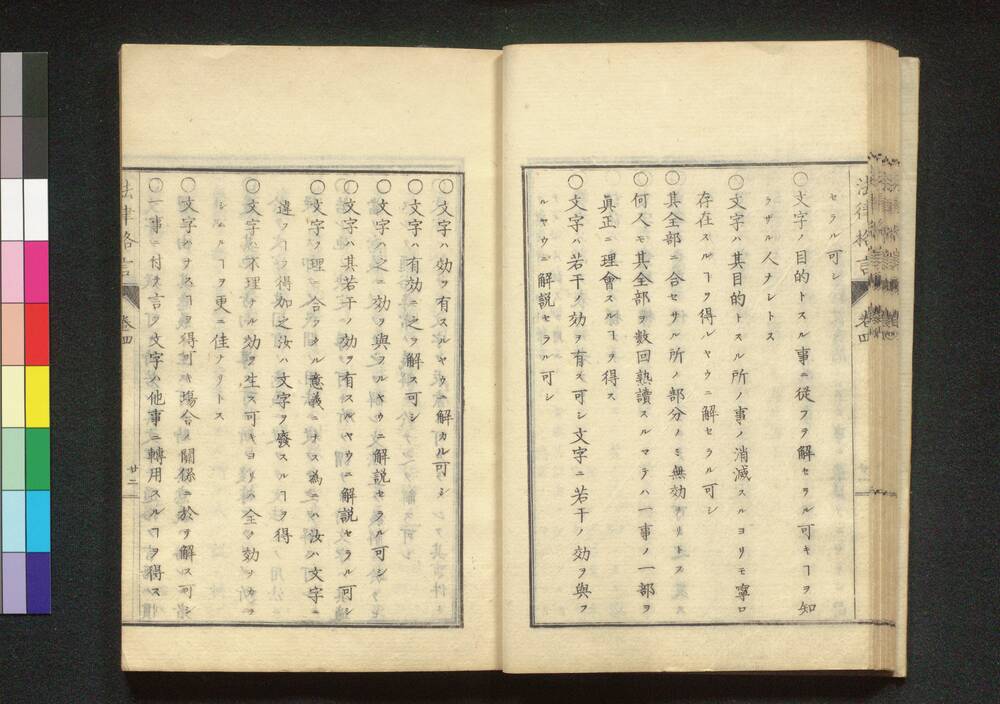 セラル可シ
〇文字ノ目的トスル事ニ從フヲ解セラル可キヿヲ知
ラザル人ナレトス
〇文字ハ其目的トスル所ノ事ノ消滅スルヨリモ寧ロ
存在スルヿヲ得レヤウニ解セラル可シ
〇其全部ニ合セサル所ノ部分ノミ無効ナリトス
〇何人モ其全部ヲ數回熟讀スルマテハ一事ノ一部ヲ
眞正ニ理會スルヿヲ得ス
〇文字ハ若干ノ効ヲ有ス可シ文字ニ若干ノ効ヲ與フ
ルヤウニ解説セラル可シ
法律格言 卷四
〇文字ハ効ヲ有スルヤウニ解カル可シ
〇文字ハ有効ニ之ヲ解ス可シ
〇文字ハ之ニ効ヲ與フルヤウニ解説セラル可シ
〇文字ハ其若干ノ効ヲ有スルヤウニ解説セラル可シ
〇文字ヲ理ニ合フタル意義ニナス爲ニハ汝ハ文字ニ
違フヿヲ得加之汝ハ文字ヲ廢スルヿヲ得
〇文字ハ不理ナル効ヲ生ス可キヨリハ全ク効ナカラ
シムルヿヲ更ニ佳ナリトス
〇文字ハ
得可キ塲合ノ關係ニ於テ解ス可シ
〇一事ニ付テ言フ文字ハ他事ニ轉用スルヿヲ得ス
法律格言 卷四 廿二